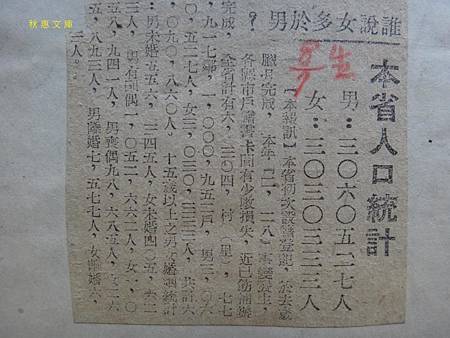 秋惠文庫
誰說女多於男？
本省人口統計
男：三〇六〇五二七人
女：三〇三〇三三三人
【本報訊】本省初次設籍登記，於去歲
臘月完成，本年「二，二八」事變發生，
各縣市戶籍卡間有少數損失，近已飭補辦
完成，全省計有六，三〇四村（里），七七
，九一七鄰，一，〇〇〇，九五二戶，男三，〇六
〇，五二七人，女三，〇三〇，三三三人，共計六
，〇九〇，八六〇人。十五歲以上之男女婚姻統計
：男未婚五五六，二四五人，女未婚四〇五，六二
三人，男有偶一，〇五二，六六二人，女一，〇
五八，九四一人，男喪偶九八，六八五人，女二六
五，八九三人，男離婚七，五七七人，女離婚六，
三人。